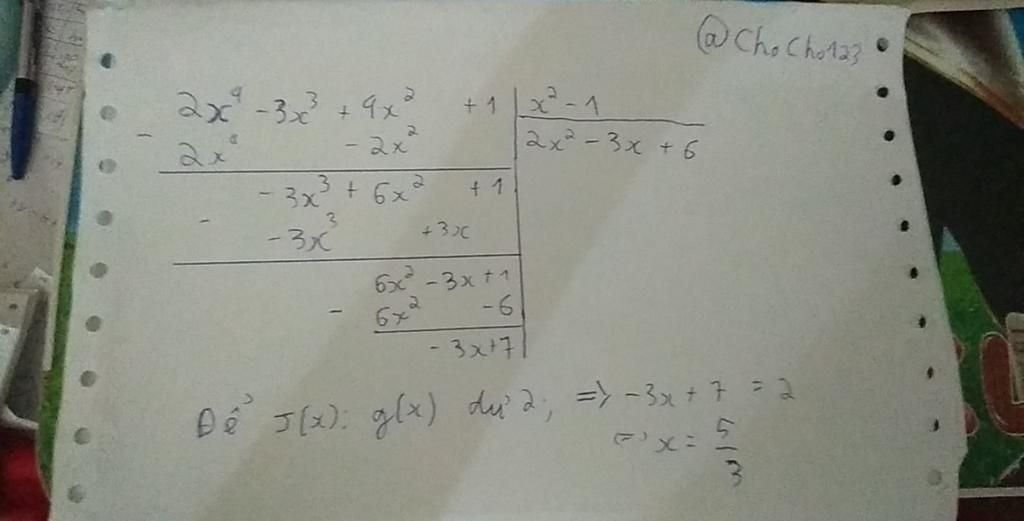 @ChoCho123
2x⁴ - 3x³ + 4x² + 1 | x² - 1
- 2x⁴ - 2x² | 2x² - 3x + 6
- 3x³ + 6x² + 1
- - 3x³ + 3x
6x² - 3x + 1
- 6x² - 6
- 3x + 7
Để f(x) : g(x) dư 2, => -3x + 7 = 2
<=> x = 5/3